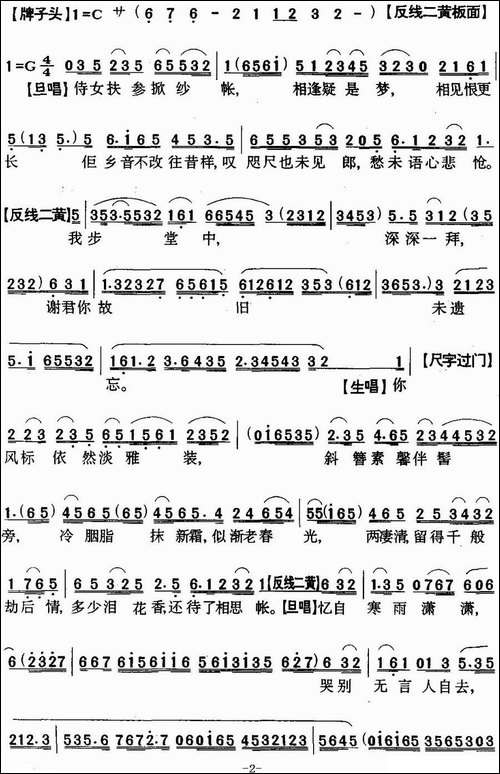 【牌子头】1=C サ(6 7 6 - 2 1 1 2 3 2 -)【反线二黄板面】
1=G 4/4 0 3 5 2 3 5 6 5 5 3 2 | 1 (6561) 5 1 2 3 4 5 3 2 3 0 2 1 6 1 |
【旦唱】侍女扶 参掀纱 帐, 相逢疑是梦, 相见恨更
5 (1 3 5.) 5 6.1 6 5 4 5 3.5 | 6 5 5 3 5 3 2 1 2 0 5 6.1 2 3 2 1 |
长 佢乡音不改往昔样,叹 咫尺也未见郎,愁未语心悲怆。
【反线二黄】5 | 353.5532 161 66545 3 (2312 | 3453) 5.5 312 (35
我步 堂中, 深深一拜,
232) 6 3 1 | 1.32327 65615 612612 353 (612 | 3653.) 3 2123
谢君你故 旧 未遗
5.i 65532 | 161.2 3.6435 2.34543 32 1 |【尺字过门】|
忘。 【生唱】你
2 23 235 651561 2352 | (0i6535) 2.35 4.65 2344532
风标依然淡雅装, 斜簪素馨伴髻
1.(65) 4565 (65) 4565.4 24 654 | 55(i65) 465 25 3432
旁, 冷胭脂 抹新霜,似渐老春 光, 两凄清,留得千般
1 765 | 65 325 2.5 6.1232 1【反线二黄】6 32 | 1.35 0767 606
劫后情,多少泪花香,还待了相思帐。【旦唱】忆自寒雨潇潇,
6 (2327 | 667 6i56ii6 56i3i35 627) 6 32 | 161 013 5.35
哭别 无言人自去,
212.3 | 535.6 7672.7 060i0i65 4532123 | 5645 (0i6i65 3565303
-2-